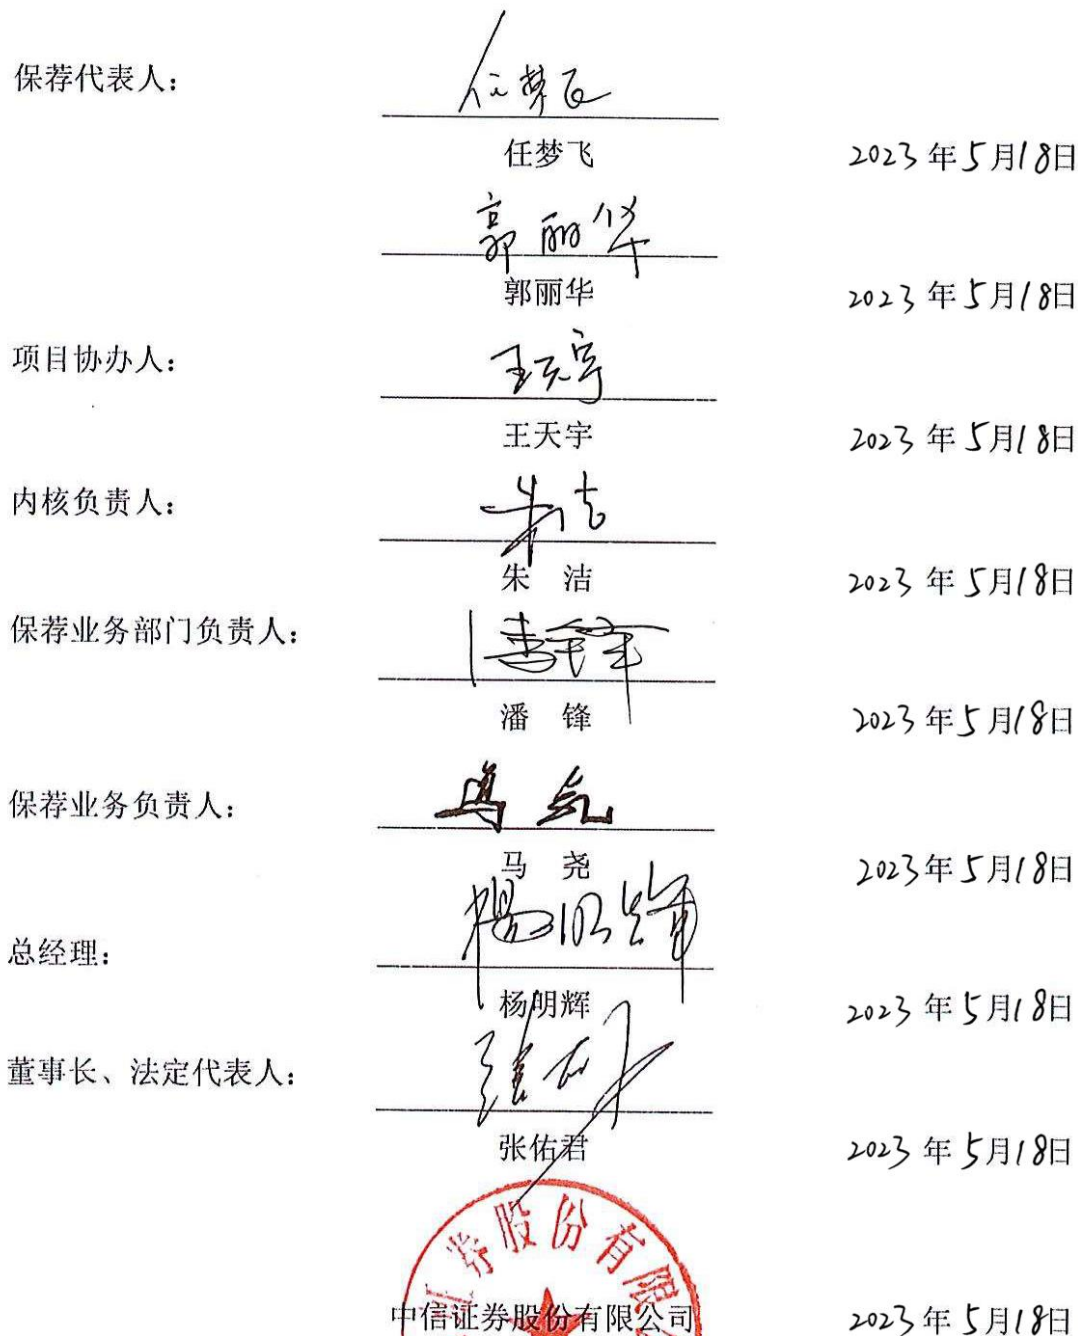 保荐代表人：
任梦飞
任梦飞 2023年5月18日
郭丽华
郭丽华 2023年5月18日
项目协办人：
王天宇
王天宇 2023年5月18日
内核负责人：
朱洁
朱 洁 2023年5月18日
保荐业务部门负责人：
潘锋
潘 锋 2023年5月18日
保荐业务负责人：
马尧
马 尧 2023年5月18日
总经理：
杨明辉
杨明辉 2023年5月18日
董事长、法定代表人：
张佑君
张佑君 2023年5月18日
证券股份有限公
中信证券股份有限公司 2023年5月18日